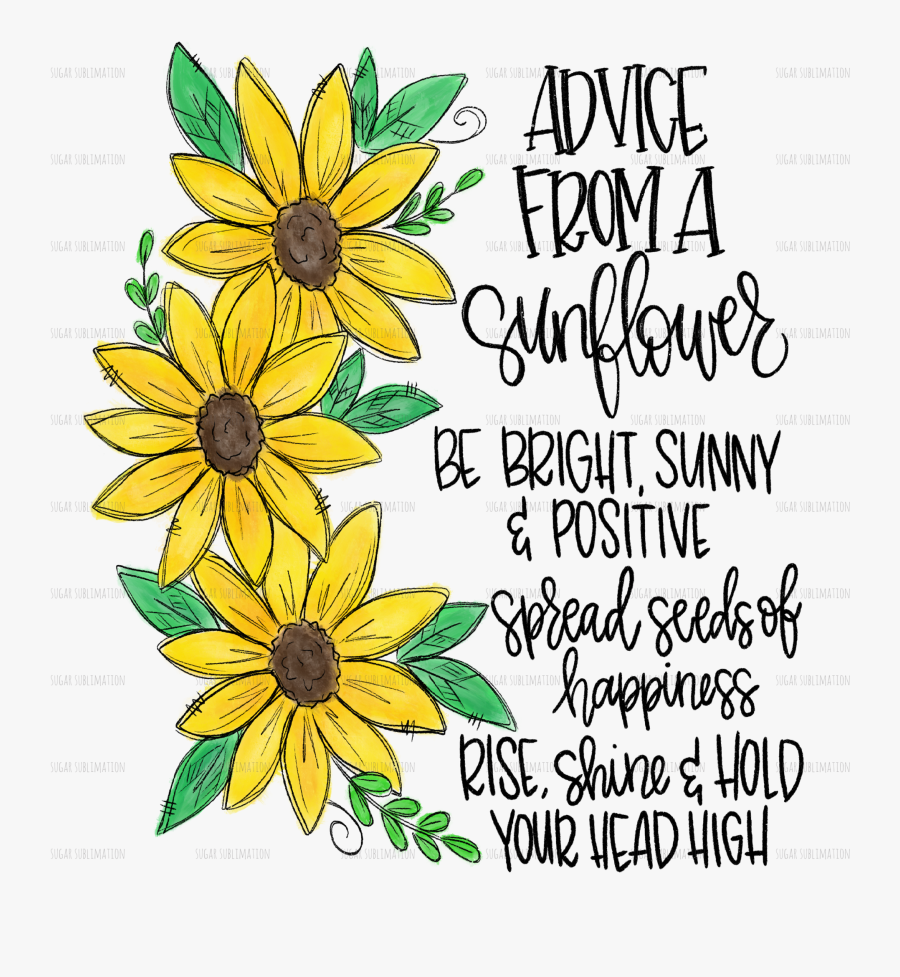 ADVICE
FROM A
sunflower
BE BRIGHT, SUNNY
& POSITIVE
spread seeds of
happiness
RISE, shine & HOLD
YOUR HEAD HIGH
SUGAR SUBLIMATION